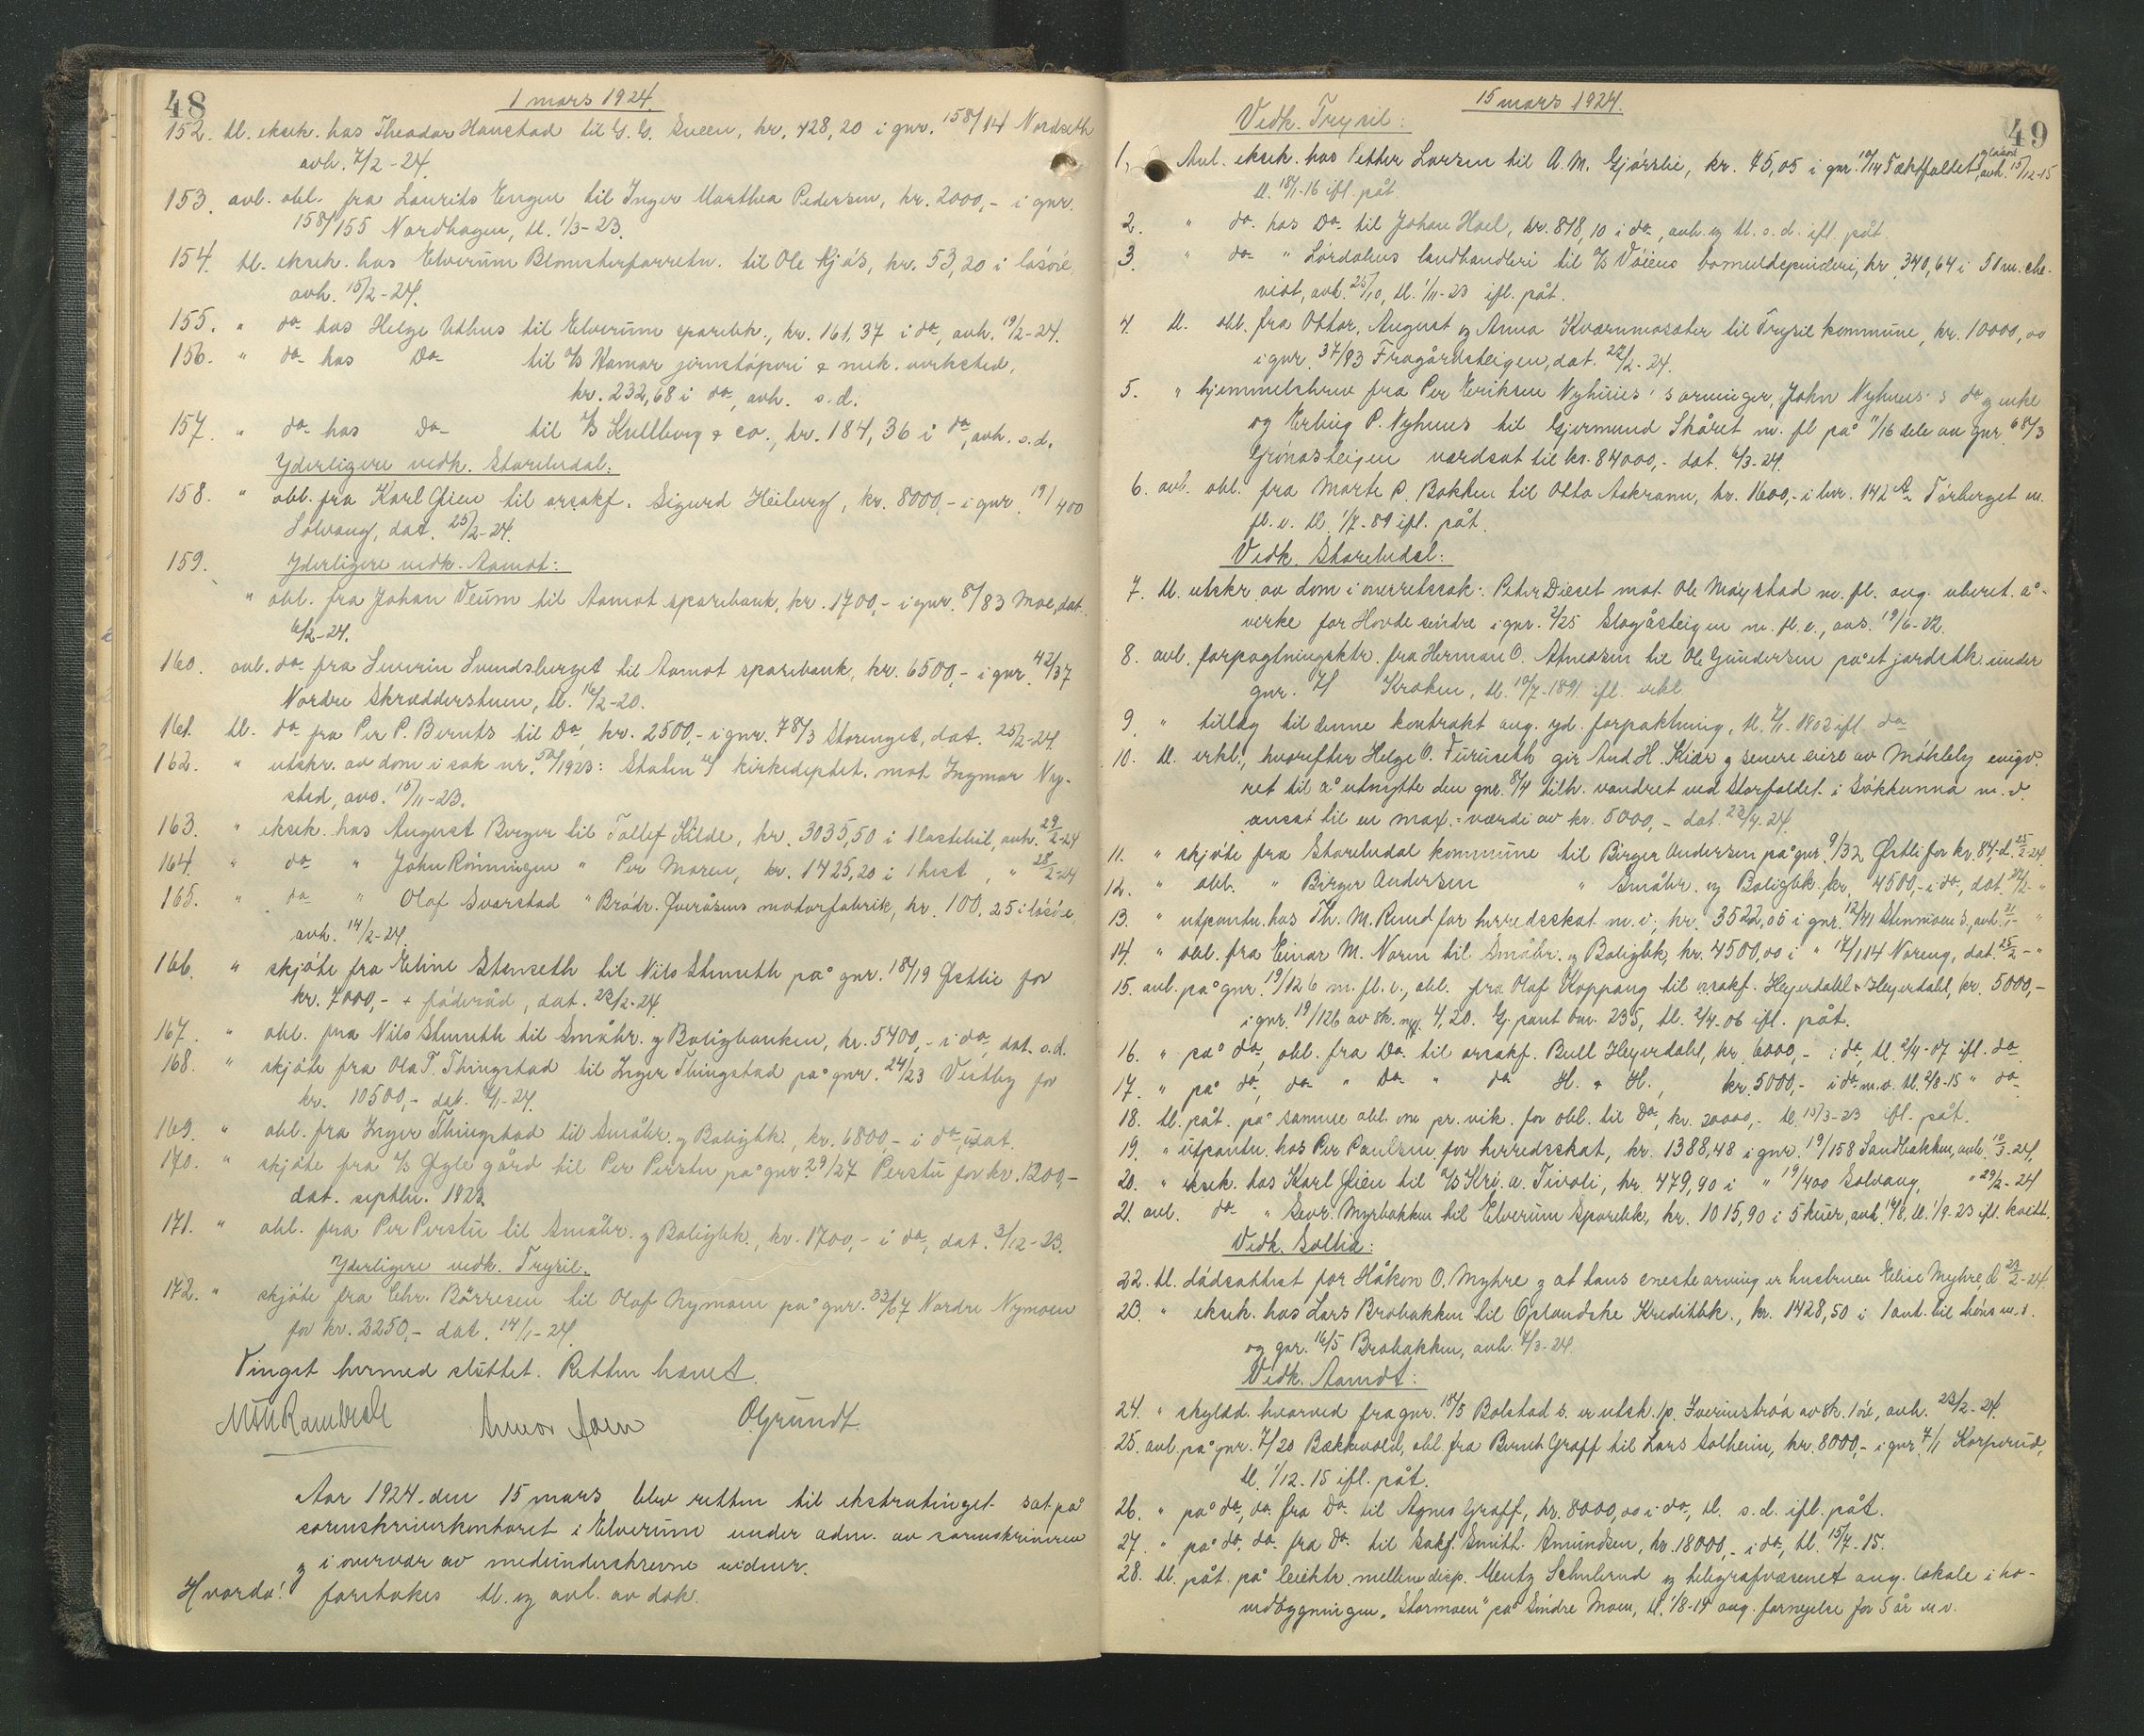 48
1 mars 1924.
152. tl. eksek. hos Theodor Hanstad til G. G. Sveen, kr. 428,20 i gnr. 158/14 Nordseth
avh. 7/2-24.
153. avl. obl. fra Laurits Engen til Inger Marthea Pedersen, kr. 2000,- i gnr.
158/155 Nordhagen, tl. 1/3-23.
154. tl. eksek. hos Elverum Blomsterforretn. til Ole Kjós, kr. 53,20 i lósóre,
avh. 15/2-24.
155. " do hos Helge Udhus til Elverum sparebk., kr. 161,37 i do, avh. 19/2-24.
156. " do hos Do til A/S Hamar jernstóperi & mek. verksted,
kr. 232,68 i do, avh. s.d.
157. " do hos Do til A/S Kullberg & co., kr. 184,36 i do, avh. s.d.
Yderligere vedk. Storelvdal:
158. " obl. fra Karl Øien til orsakf. Sigurd Heiberg, kr. 8000,- i gnr. 19/400
Solvang, dat. 25/2-24.
159. Yderligere vedk. Aamot:
" obl. fra Johan Veum til Aamot sparebank, kr. 1700,- i gnr. 8/83 Moe, dat.
6/2-24.
160. avl. do fra Severin Svendsberget til Aamot sparebank, kr. 6500,- i gnr. 42/37
Nordre Skrædderstuen, tl. 16/2-20.
161. tl. do fra Per P. Bernts til Do, kr. 2500,- i gnr. 78/3 Storenget, dat. 25/2-24.
162. " utskr. av dom i sak nr. 50/1923: Staten v/ kirkedeptet. mot Ingmar Ny-
sted, avs. 15/11-23.
163. " eksek. hos August Berger til Tollef Kilde, kr. 3035,50 i 1 lastebil, avh. 29/2-24
164. " do " John Rönningen " Per Moren, kr. 1425,20 i 1 hest, " 28/2-24
165. " do " Olaf Svarstad " Brödr. Iveråsens motorfabrik, kr. 100,25 i lósóre,
avh. 14/2-24.
166. " skjóte fra Eline Stenseth til Nils Stenseth på gnr. 18/19 Østlie for
kr. 7000,- + fóderåd, dat. 23/2-24.
167. " obl. fra Nils Stenseth til Småbr. og Boligbanken, kr. 5400,- i do, dat. s.d.
168. " skjóte fra Ola T. Thingstad til Inger Thingstad på gnr. 24/23 Vestby for
kr. 10500,- dat. 4/1-24.
169. " obl. fra Inger Thingstad til Småbr. og Boligbk., kr. 6800,- i do, udat.
170. " skjóte fra A/S Gyle gård til Per Perstu på gnr. 29/27 Perstu for kr. 1200,-
dat. septbr. 1923.
171. " obl. fra Per Perstu til Småbr. og Boligbk., kr. 1700,- i do, dat. 3/12-23.
Yderligere vedk. Trysil.
172. " skjóte fra Chr. Börresen til Olaf Nymoen på gnr. 33/67 Nordre Nymoen
for kr. 2250,- dat. 14/1-24.
Tinget hermed sluttet. Retten hævet.
O. Grundt.
Aar 1924 den 15 mars blev retten til ekstratinget sat på
sorenskriverkontoret i Elverum under adm. av sorenskriveren
og i overvær av medunderskrevne vidner.
Hvorda! foretokes tl. og avl. av dok.
49
15 mars 1924.
Vedk. Trysil:
1. Avl. eksek. hos Petter Larsen til A. M. Gjörslie, kr. 45,05 i gnr. 10/14 avh. 15/12-15
tl. 18/1-16 ifl. påt.
2. " do hos Do til Johan Hoel, kr. 818,10 i do, avh. og tl. s.d. ifl. påt.
3. " do " Lórdalens landhandleri til A/S Vóiens bomuldspinderi, kr. 340,64 i 50 m. che-
viot, avh. 25/10, tl. 1/11-23 ifl. påt.
4. tl. obl. fra Ottar, August og Anna Kværnmosæter til Trysil kommune, kr. 10000,00
i gnr. 37/83 Fragårdsteigen, dat. 22/2-24.
5. " hjemmelsbrev fra Per Eriksen Nyhuus's arvinger, John Nyhuus's do og enke
og Erling P. Nyhuus til Gjermund Skåret m. fl. på 11/16 dele av gnr. 68/3
Grónæsteigen værdsat til kr. 84000,- dat. 6/3-24.
6. avl. obl. fra Marte P. Bakken til Otto Askrann, kr. 1600,- i lnr. 142 a Tórberget m.
fl. e. tl. 1/7-89 ifl. påt.
Vedk. Storelvdal:
7. tl. utskr. av dom i overretssak: Peter Dieset mot Ole Mógstad m. fl. ang. uberet. a°-
virke for Hovde sóndre i gnr. 2/25 Slogåsteigen m. fl. e., avs. 19/6-22.
8. avl. forpagtningsktr. fra Herman O. Atneosen til Ole Gundersen på et jordstk. under
gnr. 4/1 Kroken, tl. 10/7-1891 ifl. erkl.
9. " tillæg til denne kontrakt ang. yd. forpaktning, tl. 4/1-1902 ifl. do
10. tl. erkl., hvorefter Helge O. Furuseth gir And. H. Kiær og senere eiere av Mókleby evigv.
ret til a° utnytte den gnr. 8/4 tilh. vandret ved Storfaldet i Sókkunna m.v.
ansat til en max.-værdi av kr. 5000,- dat. 22/4-24.
11. " skjóte fra Storelvdal kommune til Birger Andersen på gnr. 9/32 Østli for kr. 84,- d. 25/2-24.
12. " obl. " Birger Andersen " Småbr. og Boligbk. kr. 4500,- i do, dat. 26/2- "
13. " utpantn. hos Th. M. Ruud for herredsskat m. v., kr. 3522,05 i gnr. 12/41 Stenmoen s., avh. 21/1- "
14. " obl. fra Einar M. Noren til Småbr. og Boligbk, kr. 4500,00 i " 17/114 Noreng, dat. 25/2- "
15. avl. på gnr. 19/126 m. fl. e., obl. fra Olaf Koppang til orsakf. Heyerdahl & Heyerdahl, kr. 5000,-
i gnr. 19/126 av sk. mrk. 4,20. Gj. pant bnr. 235, tl. 2/4-06 ifl. påt.
16. " på do, obl. fra Do til orsakf. Bull Heyerdahl, kr. 6000,- i do, tl. 2/4-07 ifl. do
17. " på do, do " Do " do H. & H., kr. 5000,- i do m.v. tl. 2/8-15 " do
18. tl. påt. på samme obl. om pr. vik. for obl. til Do, kr. 20000,- tl. 15/3-23 ifl. påt.
19. " utpantn. hos Per Paulsen for herredsskat, kr. 1388,48 i gnr. 19/158 Sandbakken, avh. 10/3-24.
20. " eksek. hos Karl Øien til A/S Kra. a. Tivoli, kr. 479,90 i " 19/400 Solvang, " 29/2-24
21. avl. do " Sevr. Myrbakken til Elverum Sparebk, kr. 1015,90 i 5 kuer, avh. 14/8, tl. 1/9-23 ifl. kvitt.
Vedk. Sollia:
22. tl. dódsattest for Håkon O. Myhre og at hans eneste arving er hustruen Eline Myhre, d. 29/2-24
23. " eksek. hos Lars Brobakken til Oplandske Kreditbk., kr. 1428,50 i 1 ant. bil m.v.
og gnr. 16/5 Brobakken, avh. 7/3-24.
Vedk. Aamot:
24. " skyldd. hvorved fra gnr. 18/5 Bolstad s. er utsk. 1 p. Iverinströa av sk. 1 óre, avh. 23/2-24.
25. avl. på gnr. 7/20 Bækkevold, obl. fra Bernh. Graff til Lars Solheim, kr. 8000,- i gnr. 7/1 Korperud,
tl. 1/12-15 ifl. påt.
26. " på do, do fra Do til Agnes Graff, kr. 8000,00 i do, tl. s.d. ifl. påt.
27. " på do, do fra Do til Sakf. Smith Amundsen, kr. 18000,- i do, tl. 15/7-15.
28. tl. påt. på leiektr. mellem disp. Mentz Schulerud og telegrafvæsenet ang. lokale i ho-
vedbygningen „Stormoen" på Sóndre Moen, tl. 1/8-19 ang. fornyelse for 5 år m.v.